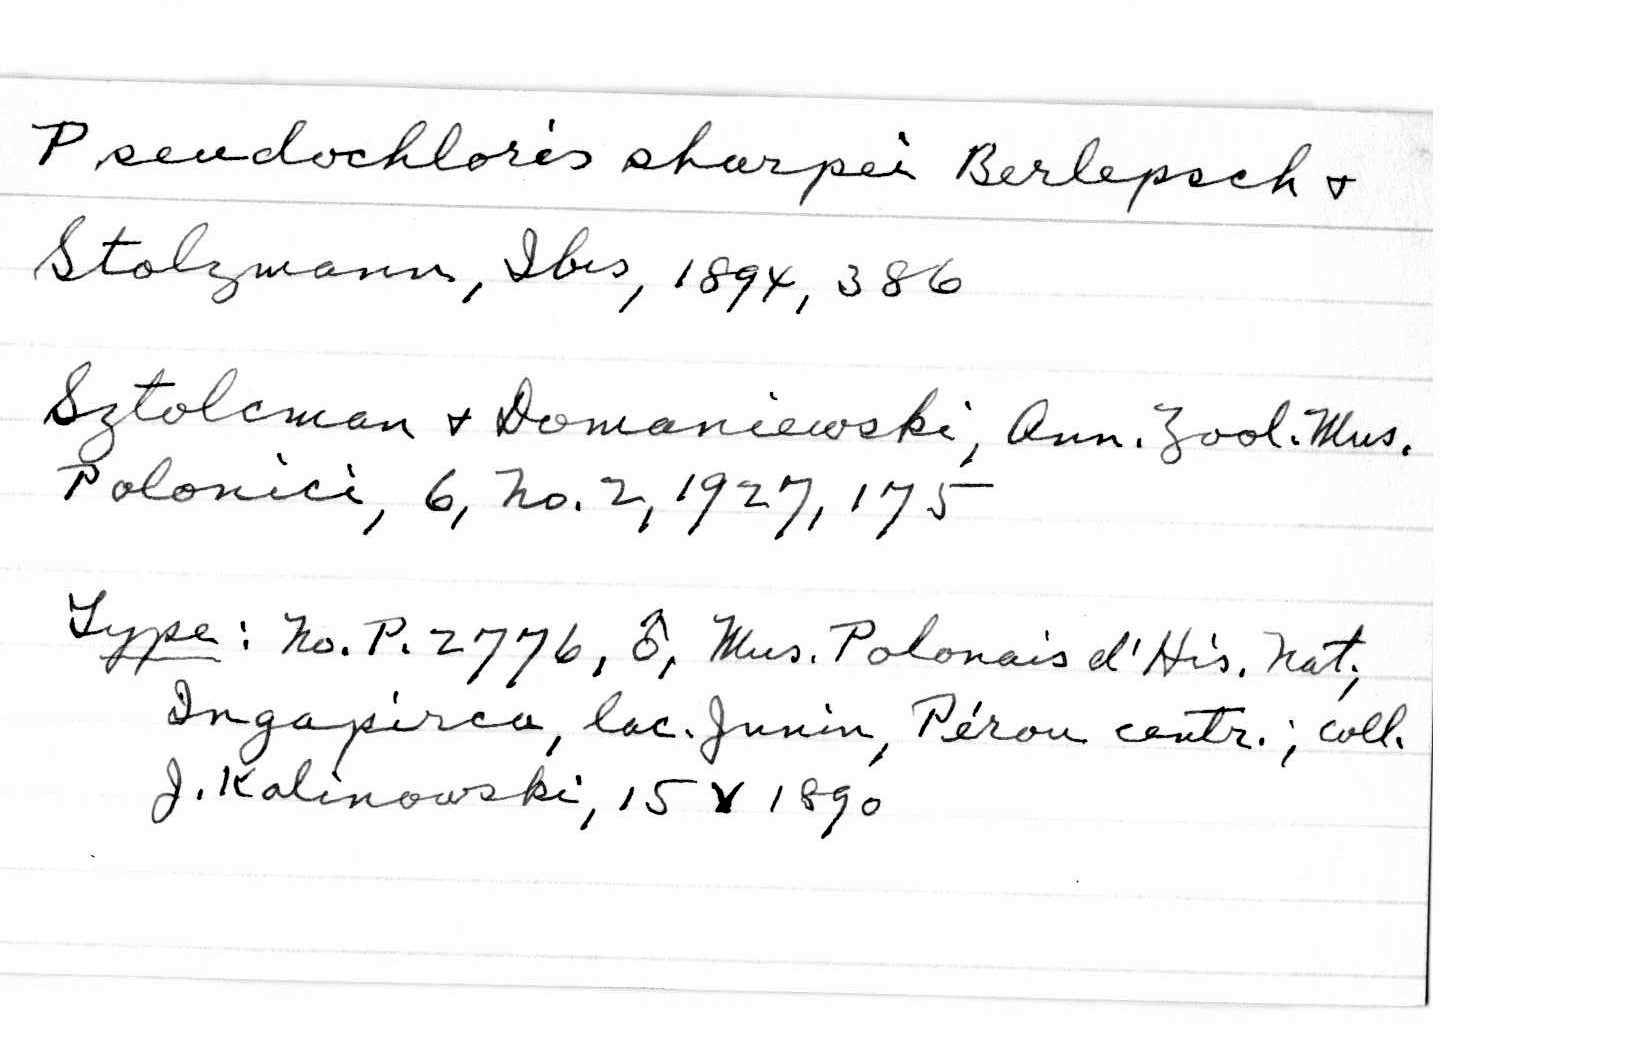 Pseudochloris sharpei Berlepsch &
Stolzmann, Ibis, 1894, 386
Sztolcman & Domaniewski, Ann. Zool. Mus.
Polonici, 6, No. 2, 1927, 175
Type: No. P. 2776, ♂, Mus. Polonais d'His. Nat.;
Ingapirca, lac. Junin, Pérou centr.; coll.
J. Kalinowski, 15 V 1890